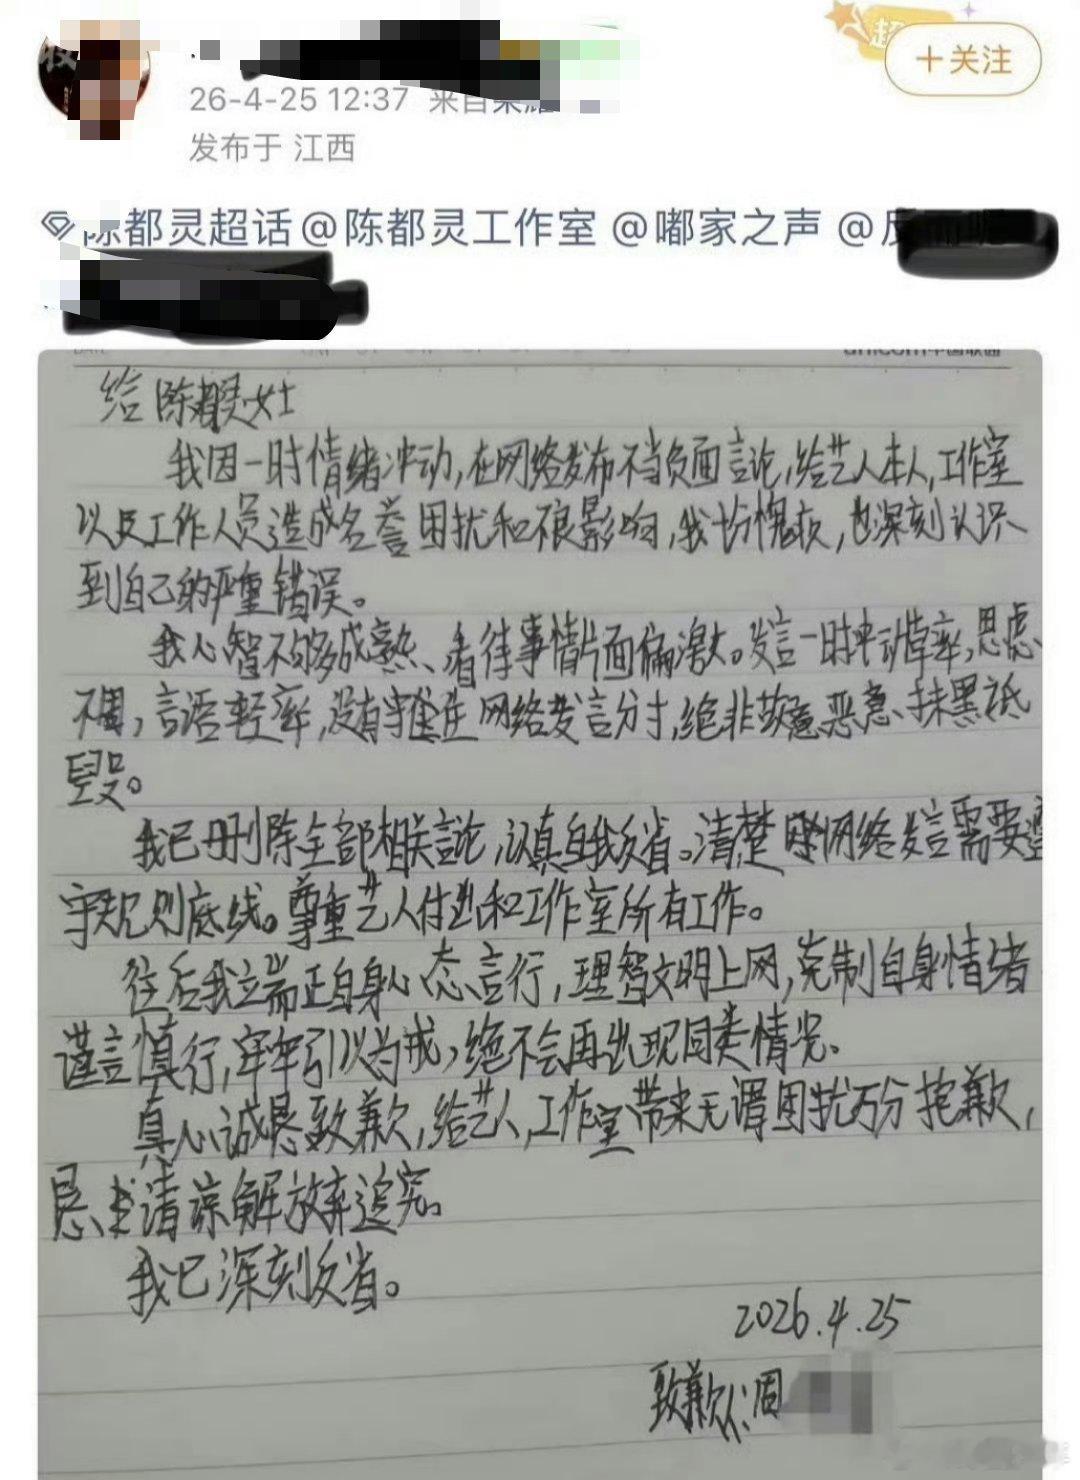 超
+关注
26-4-25 12:37 来自荣耀
发布于 江西
陈都灵超话@陈都灵工作室 @嘟家之声 @反
unicom中国联通
给陈都灵女士
我因一时情绪冲动,在网络发布不当负面言论,给艺人本人,工作室
以及工作人员造成名誉困扰和不良影响,我十分愧疚,也深刻认识
到自己的严重错误。
我心智不够成熟、看待事情片面偏激。发言一时冲动草率,思虑
不周,言语轻率,没有守住 网络发言分寸,绝非故意恶意、抹黑诋
毁。
我已删除全部相关言论,认真自我反省。清楚 网络发言需要遵
守规则底线。尊重艺人付出和工作室所有工作。
往后我立端正自身心态言行,理智文明上网,克制自身情绪
谨言慎行,牢牢引以为戒,绝不会再出现同类情况。
真心诚恳致歉,给艺人,工作室带来无谓困扰万分抱歉,
恳求请谅解放弃追究。
我已深刻反省。
2026.4.25
致歉人:周